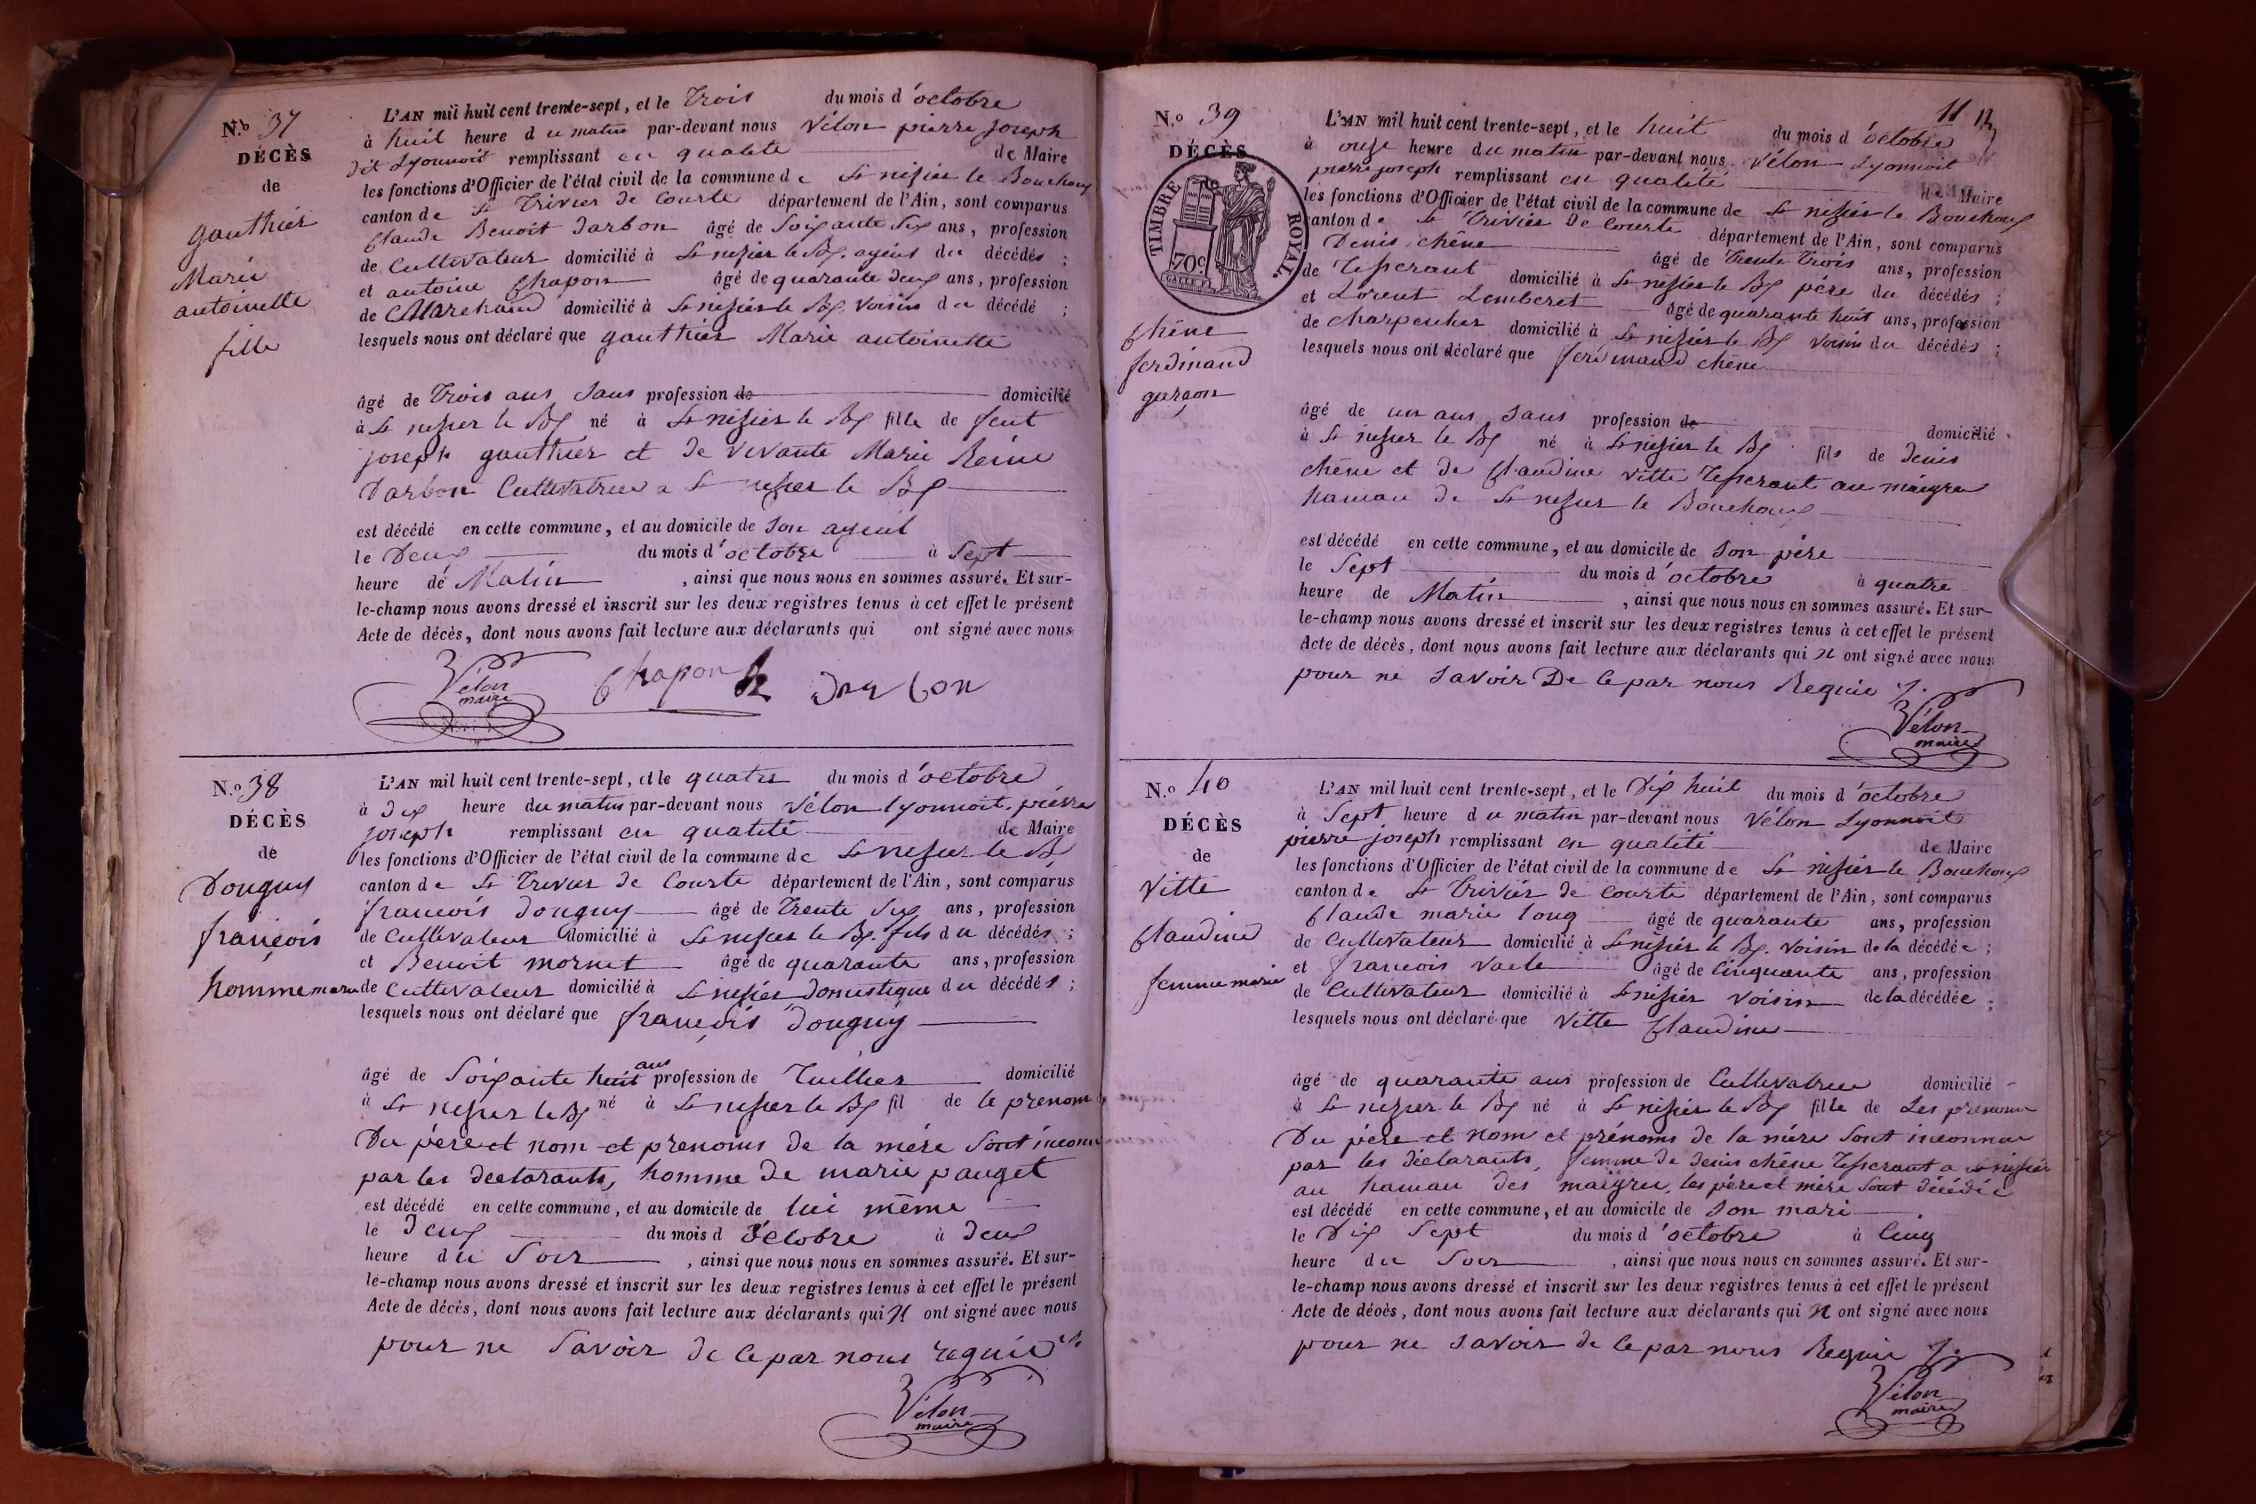 N.o 37
DÉCÈS
de
gauthier
Marie
antoinette
fille
L'AN mil huit cent trente-sept, et le Trois du mois d'octobre
à huit heure du matin par-devant nous Vélon pierre joseph
dit Lyonnoit remplissant en qualité de Maire
les fonctions d'Officier de l'état civil de la commune de St nisier le Bouchoux
canton de St Trivier de Courte département de l'Ain, sont comparus
Claude Benoit Darbon âgé de Soixante Six ans, profession
de Cultivateur domicilié à St nisier le Bx. ayeul du décédés ;
et antoine Chapon âgé de quarante deux ans, profession
de Marchand domicilié à St nisier le Bx. Voisin du décédé ;
lesquels nous ont déclaré que gauthier Marie antoinette
âgé de Trois ans Sans profession de domicilié
à St nisier le Bx né à St nisier le Bx fille de feut
joseph gauthier et de vivante Marie Reine
Darbon Cultivatrice a St nisier le Bx
est décédé en cette commune, et au domicile de Son ayeul
le Deux du mois d'octobre à Sept
heure de Matin, ainsi que nous nous en sommes assuré. Et sur-
le-champ nous avons dressé et inscrit sur les deux registres tenus à cet effet le présent
Acte de décès, dont nous avons fait lecture aux déclarants qui ont signé avec nous
Vélon maire Chapon Darbon
N.o 38
DÉCÈS
de
Douguy
françois
homme marie
L'AN mil huit cent trente-sept, et le quatre du mois d'octobre
à dix heure du matin par-devant nous Vélon lyonnoit, pierre
joseph remplissant en qualité de Maire
les fonctions d'Officier de l'état civil de la commune de St nisier le Bx
canton de St Trivier de Courte département de l'Ain, sont comparus
françois douguy âgé de Trente Six ans, profession
de Cultivateur domicilié à St nisier le Bx. fils du décédés ;
et Benoit mornet âgé de quarante ans, profession
de Cultivateur domicilié à St nisier Domestique du décédés ;
lesquels nous ont déclaré que françois douguy
âgé de Soixante huit ans profession de Tuillier domicilié
à St nisier le Bx né à St nisier le Bx fil de le prenom
Du père et nom et prenoms de la mère Sont inconnu
par les declarants, homme de marie pauget
est décédé en cette commune, et au domicile de lui même
le Deux du mois d'octobre à deux
heure du Soir, ainsi que nous nous en sommes assuré. Et sur-
le-champ nous avons dressé et inscrit sur les deux registres tenus à cet effet le présent
Acte de décès, dont nous avons fait lecture aux déclarants qui n ont signé avec nous
pour ne Savoir de ce par nous requis
Vélon
maire
11
N.o 39
DÉCÈS
TIMBRE ROYAL.
70c.
Chêne
ferdinand
garçon
L'AN mil huit cent trente-sept, et le huit du mois d'octobre
à onze heure du matin par-devant nous Vélon Lyonnoit
pierre joseph remplissant en qualité de Maire
les fonctions d'Officier de l'état civil de la commune de St nisier le Bouchoux
canton de St Trivier de Courte département de l'Ain, sont comparus
Denis chêne âgé de Trente Trois ans, profession
de Tisserant domicilié à St nisier le Bx père du décédés ;
et Lorent Lemberet âgé de quarante huit ans, profession
de charpentier domicilié à St nisier le Bx Voisin du décédés ;
lesquels nous ont déclaré que ferdinand chêne
âgé de un ans Sans profession de domicilié
à St nisier le Bx né à St nisier le Bx fils de Denis
chêne et de Claudine vitte Tisserant au maigre
hameau de St nisier le Bouchoux
est décédé en cette commune, et au domicile de Son père
le Sept du mois d'octobre à quatre
heure de Matin, ainsi que nous nous en sommes assuré. Et sur-
le-champ nous avons dressé et inscrit sur les deux registres tenus à cet effet le présent
Acte de décès, dont nous avons fait lecture aux déclarants qui n ont signé avec nous
pour ne Savoir De ce par nous Requis
Vélon
maire
N.o 40
DÉCÈS
de
Vitte
Claudine
femme marie
L'AN mil huit cent trente-sept, et le Dix huit du mois d'octobre
à Sept heure du matin par-devant nous Vélon Lyonnoit
pierre joseph remplissant en qualité de Maire
les fonctions d'Officier de l'état civil de la commune de St nisier le Bouchoux
canton de St Trivier de Courte département de l'Ain, sont comparus
Claude marie long âgé de quarante ans, profession
de Cultivateur domicilié à St nisier le Bx. Voisin de la décédée ;
et francois Vacle âgé de Cinquante ans, profession
de Cultivateur domicilié à St nisier Voisin de la décédée ;
lesquels nous ont déclaré que Vitte Claudine
âgé de quarante ans profession de Cultivatrice domicilié
à St nisier le Bx né à St nisier le Bx fille de Les prenom
Du père et nom et prénoms de la mère Sont inconnu
par les déclarants, femme de denis chêne Tisserant a St nisier
au hameau des maigres, les père et mère Sont décédé
est décédé en cette commune, et au domicile de Son mari
le Dix Sept du mois d'octobre à Cinq
heure du Soir, ainsi que nous nous en sommes assuré. Et sur-
le-champ nous avons dressé et inscrit sur les deux registres tenus à cet effet le présent
Acte de décès, dont nous avons fait lecture aux déclarants qui n ont signé avec nous
pour ne Savoir de ce par nous Requis
Vélon
maire